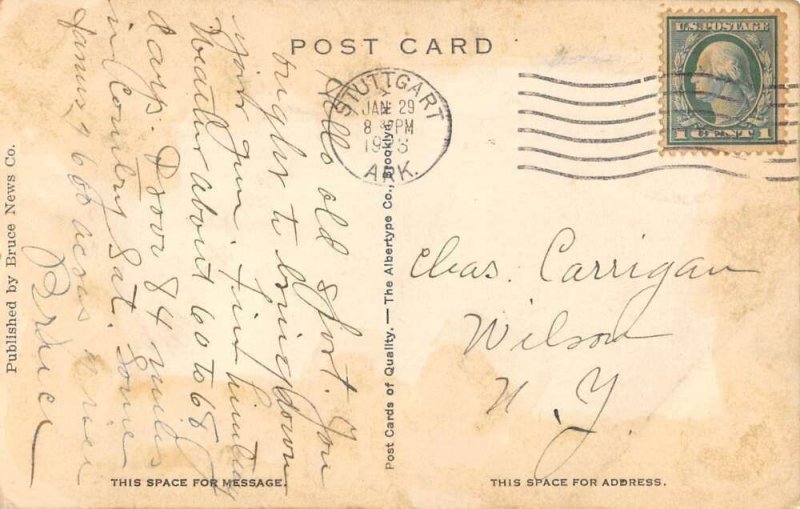 POST CARD
U.S. POSTAGE
1 CENT 1
STUTTGART
JAN 29
8 PM
ARK.
Hello old sport. You
ought to bring down
your gun. Fine hunting
Weather about 60 to 68
days. Drove 84 miles
in Country Sat. Some
farms 9 600 acres
Bruce
Chas. Carrigan
Wilson
N.Y.
Published by Bruce News Co.
Post Cards of Quality. — The Albertype Co., Brooklyn
THIS SPACE FOR MESSAGE.
THIS SPACE FOR ADDRESS.